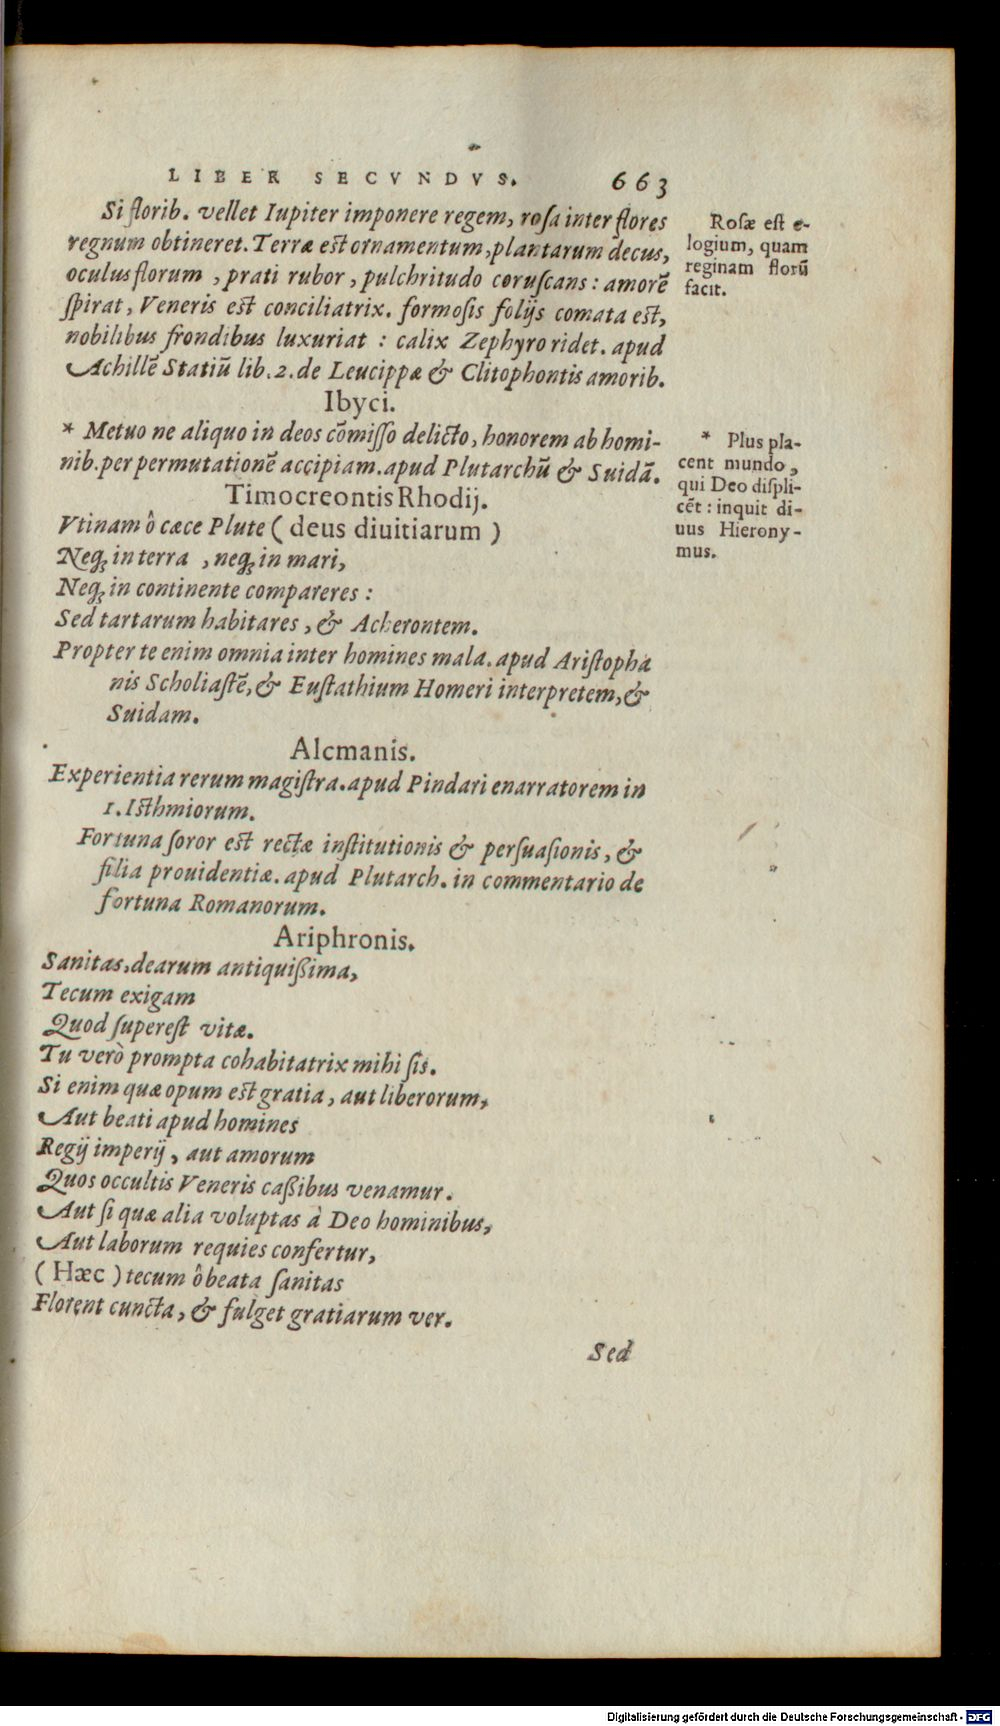 LIBER SECVNDVS. 663
Si florib. vellet Iupiter imponere regem, rosa inter flores
regnum obtineret. Terræ est ornamentum, plantarum decus,
oculus florum, prati rubor, pulchritudo coruscans: amorē
spirat, Veneris est conciliatrix. formosis folijs comata est,
nobilibus frondibus luxuriat: calix Zephyro ridet. apud
Achillē Statiū lib. 2. de Leucippæ & Clitophontis amorib.
Rosæ est e-
logium, quam
reginam florū
facit.
Ibyci.
* Metuo ne aliquo in deos cōmisso delicto, honorem ab homi-
nib. per permutationē accipiam. apud Plutarchū & Suidā.
* Plus pla-
cent mundo,
qui Deo displi-
cēt: inquit di-
uus Hierony-
mus.
Timocreontis Rhodij.
Vtinam ô cæce Plute (deus diuitiarum)
Neq; in terra, neq; in mari,
Neq; in continente compareres:
Sed tartarum habitares, & Acherontem.
Propter te enim omnia inter homines mala. apud Aristopha
nis Scholiastē, & Eustathium Homeri interpretem, &
Suidam.
Alcmanis.
Experientia rerum magistra. apud Pindari enarratorem in
1. Isthmiorum.
Fortuna soror est rectæ institutionis & persuasionis, &
filia prouidentiæ. apud Plutarch. in commentario de
fortuna Romanorum.
Ariphronis.
Sanitas, dearum antiquißima,
Tecum exigam
Quod superest vitæ.
Tu verò prompta cohabitatrix mihi sis.
Si enim quæ opum est gratia, aut liberorum,
Aut beati apud homines
Regij imperij, aut amorum
Quos occultis Veneris caßibus venamur.
Aut si quæ alia voluptas à Deo hominibus,
Aut laborum requies confertur,
(Hæc) tecum ô beata sanitas
Florent cuncta, & fulget gratiarum ver.
Sed
Digitalisierung gefördert durch die Deutsche Forschungsgemeinschaft - DFG